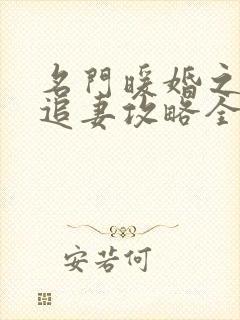 名門暖婚之
追妻攻略全
安若何